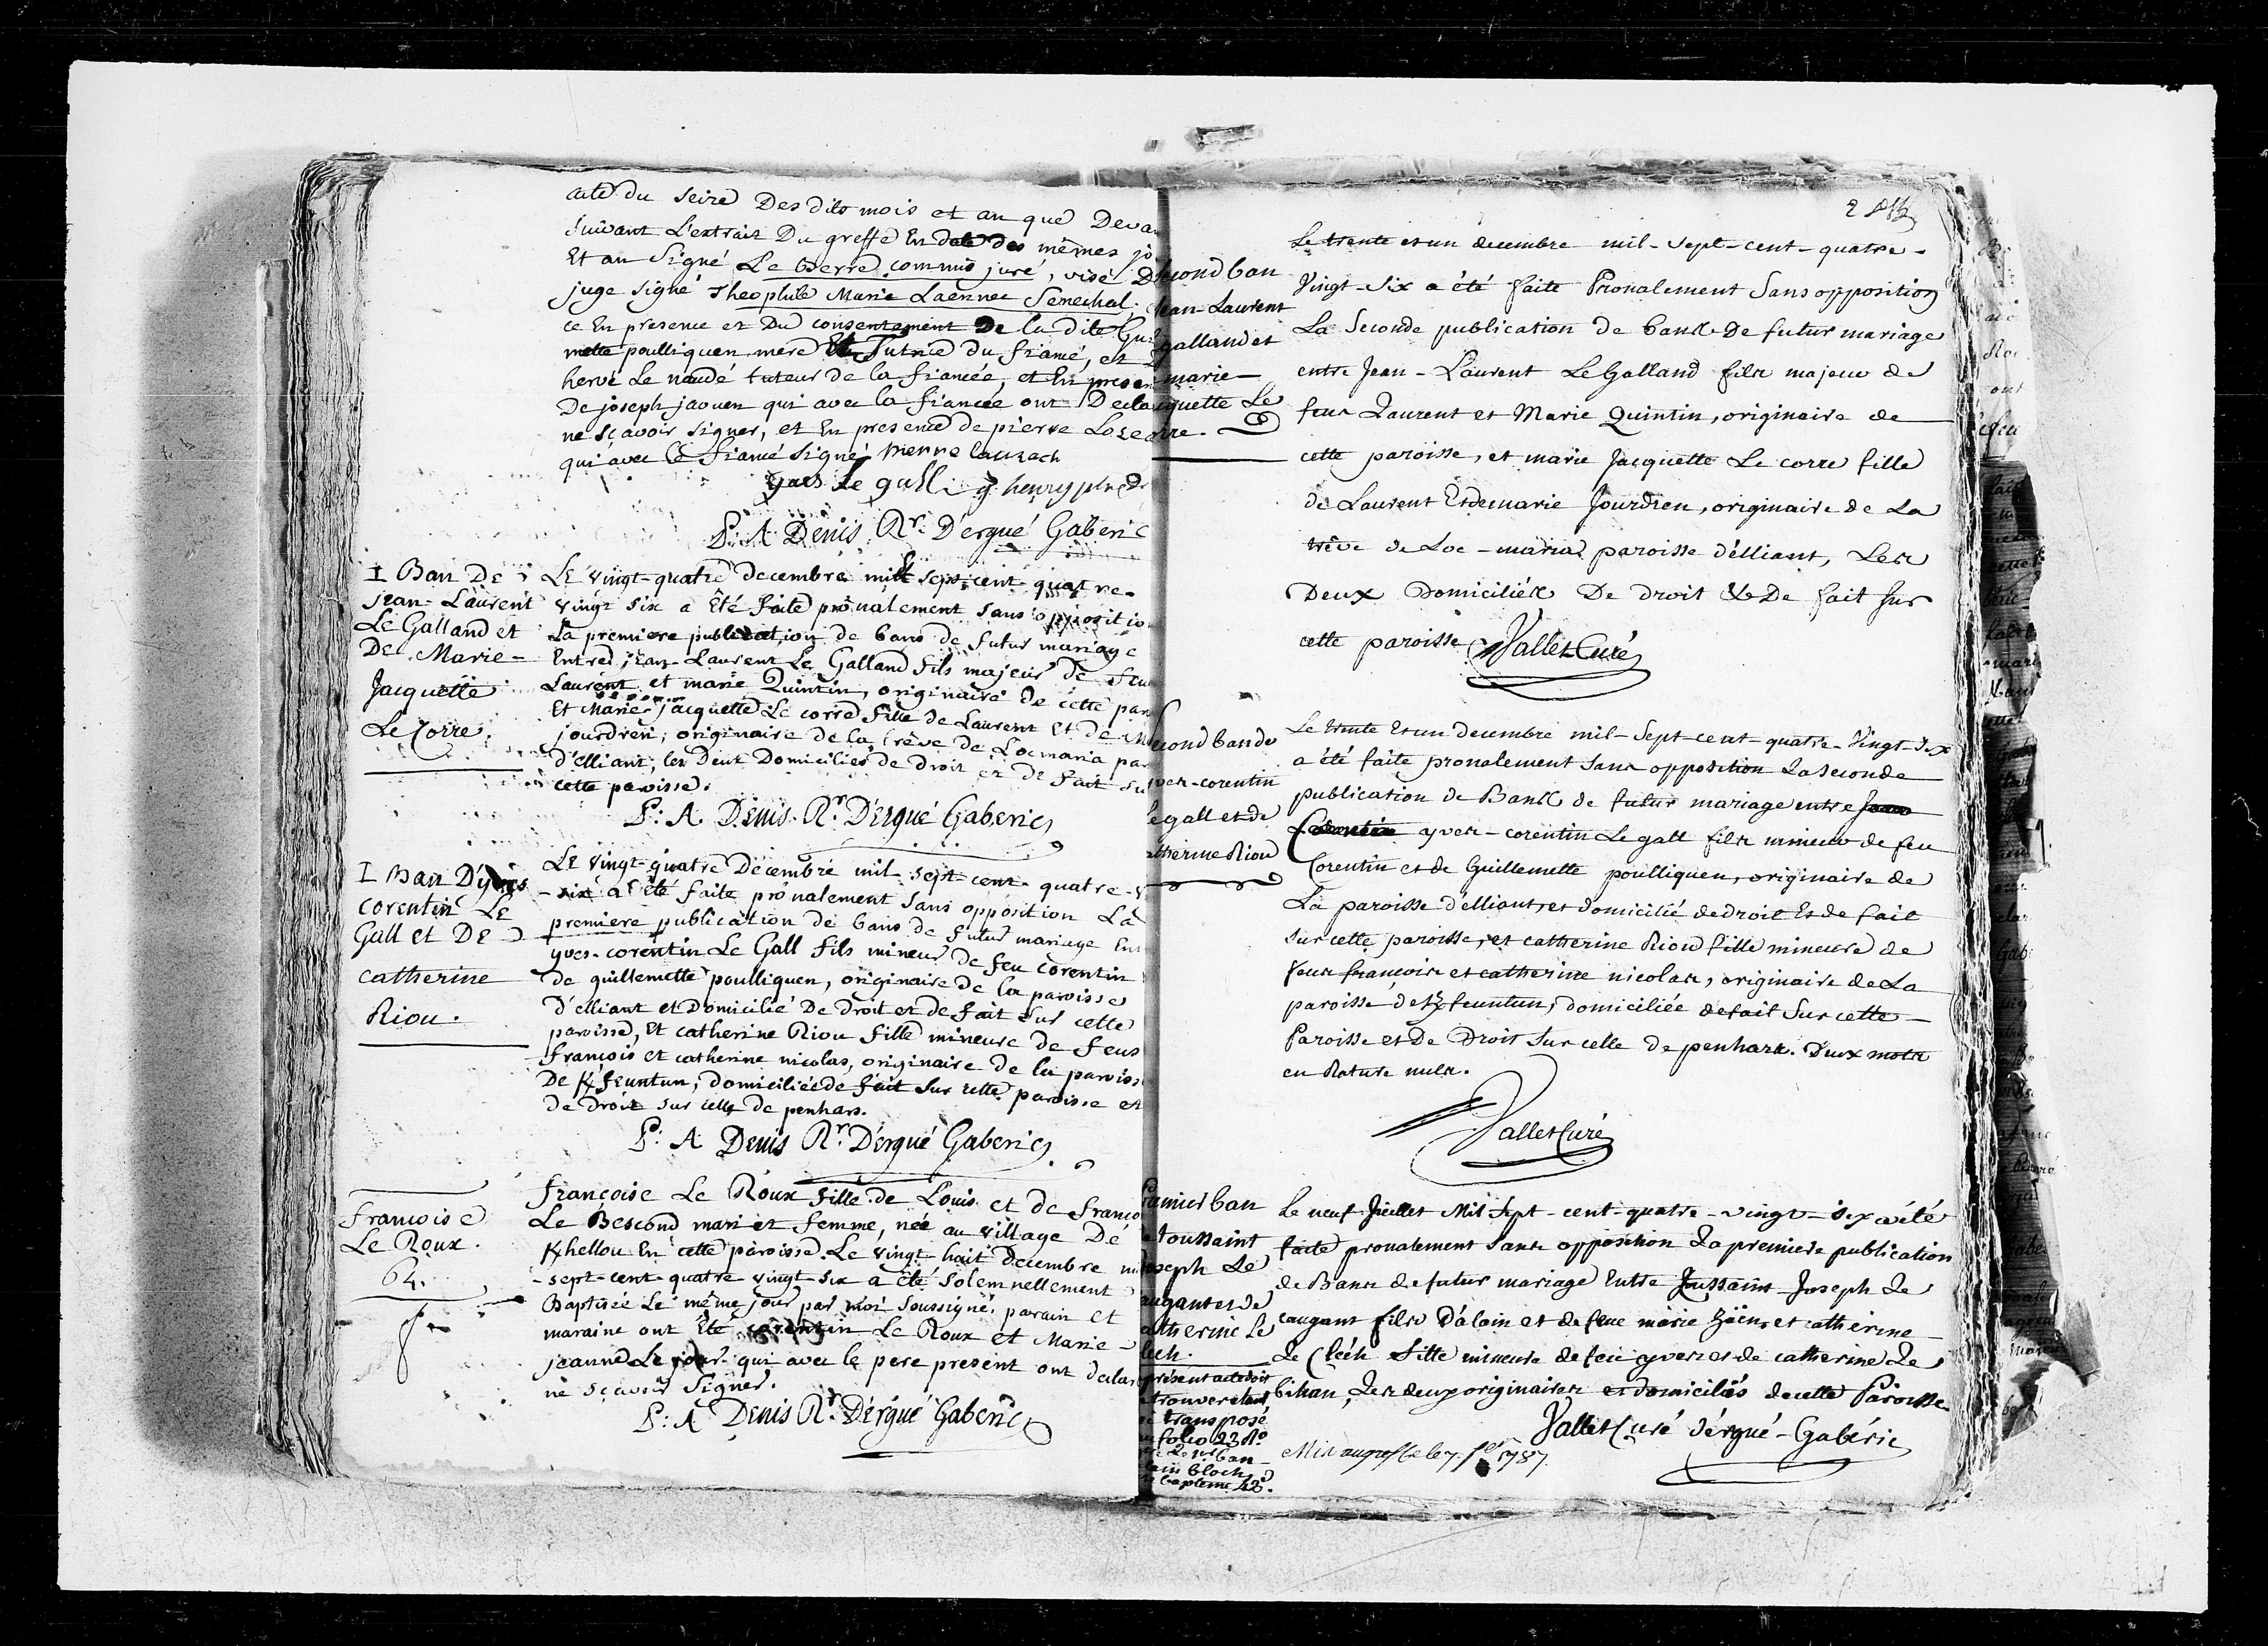 acte du seize Des dits mois et an que Deva
suivant L'extrait Du greffe En date des mêmes jo
Et an signé Le Berre commis juré, visé D
juge signé Theophile Marie Laennec Senechal;
ce En presence et Du consentement De la dite Gui
mette poulliquen mere Et Tutrice du fiancé, et
hervé Le naudé tuteur de la fiancée, et En presen
De joseph jaouen qui avec la fiancée ont Decla
ne sçavoir signer, et En presence de pierre Loze
qui avec le fiancé signé pierre lauzach
yves le gall g henry ptre
P: A Denis Rr. D'ergué Gaberic
I Ban De
jean-Laurent
Le Galland et
De Marie-
Jacquette
Le Corre.
Le vingt-quatre decembre mil sept-cent-quatre-
vingt six a Été faite prônalement sans oppositio
La premiere publication de bans de futur mariage
Entre jean-Laurent Le Galland fils majeur de feu
Laurent et marie Quintin, originaire de cette par
Et Marie-jacquette Le corre fille de Laurent Et de M
jourdren; originaire de la trêve de Locmaria par
d'Elliant; les Deux Domiciliés de Droit et De fait su
cette paroisse.
P: A. Denis. Rr. D'ergué Gaberic
I Ban D'yves
corentin Le
Gall et De
catherine
Riou.
Le vingt-quatre Décembre mil-sept-cent-quatre-v
-six a été faite prônalement sans opposition La
premiere publication de bans de futur mariage En
yves-corentin Le Gall fils mineur de feu corentin
de guillemette poulliquen, originaire de la paroisse
D'elliant et Domicilié De Droit et de fait sur cette
paroisse, Et catherine Riou fille mineure de feus
françois et catherine nicolas, originaire de la paroiss
De Kfeuntun; domiciliée de fait sur cette paroisse et
de Droit sur celle de penhars.
P: A Denis Rr. D'ergué Gaberic
françoise
Le Roux.
64.
françoise Le Roux fille de Louis et de Franço
Le Bescond mari et femme, née au village De
Khellou En cette paroisse. Le vingt-huit Decembre mi
-sept-cent-quatre vingt-six a été solemnellement
Baptisée Le même jour par moi soussigné. parain et
maraine ont Été corentin Le Roux et Marie-
jeanne Le qui avec le pere present ont declar
ne sçavoir signer.
P: A Denis Rr. D'ergué Gaberic
second ban
Jean-Laurent
galland et
marie-
cquette Le
orre.
Le trente et un decembre mil-sept-cent-quatre-
Vingt-six a été faite Pronalement sans opposition
La seconde publication de bans De futur mariage
entre Jean-Laurent Le Galland fils majeur de
feus Laurent et Marie Quintin, originaire de
cette paroisse, et marie Jacquette Le corre fille
de Laurent Et de marie Jourdren, originaire de La
trêve de Loc-maria paroisse d'élliant, Les
Deux Domiciliés De droit & De fait sur
cette paroisse Vallet Curé
second ban de
yves-corentin
Le gall et de
atherine Riou
Le trente Et un decembre mil-sept-cent-quatre-vingt-six
a été faite pronalement sans opposition La seconde
publication de Bans de futur mariage entre Jean
Corentin yves-corentin Le gall fils mineur de feu
Corentin et de Guillemette poulliquen, originaire de
La paroisse d'élliant, et domicilié de droit Et de fait
sur cette paroisse, et catherine Riou fille mineure de
feus françois et catherine nicolas, originaire de La
paroisse de Kfeuntun, domiciliée de fait sur cette-
Paroisse et De Droit sur celle de penhars. Deux mots
en Rature nuls.
Vallet Curé
Premier ban
e toussaint
oseph Le
augant et de
atherine Le
lech.
present acte doit
trouver étant
transposé
folio 23 Ro
ban
bloch,
bapteme 42.
Le neuf Juillet Mil sept-cent-quatre-vingt-six a été
faite pronalement sans opposition La premiere publication
de Bans de futur mariage Entre Toussaint-Joseph Le
caugant fils D'alain et de feue marie et catherine
Le Cléch fille mineure de feu yves et de catherine Le
bihan, Les deux originaires et domiciliés de cette Paroisse
Vallet Curé d'érgué-Gabéric
Mis au greffe le 7 1787